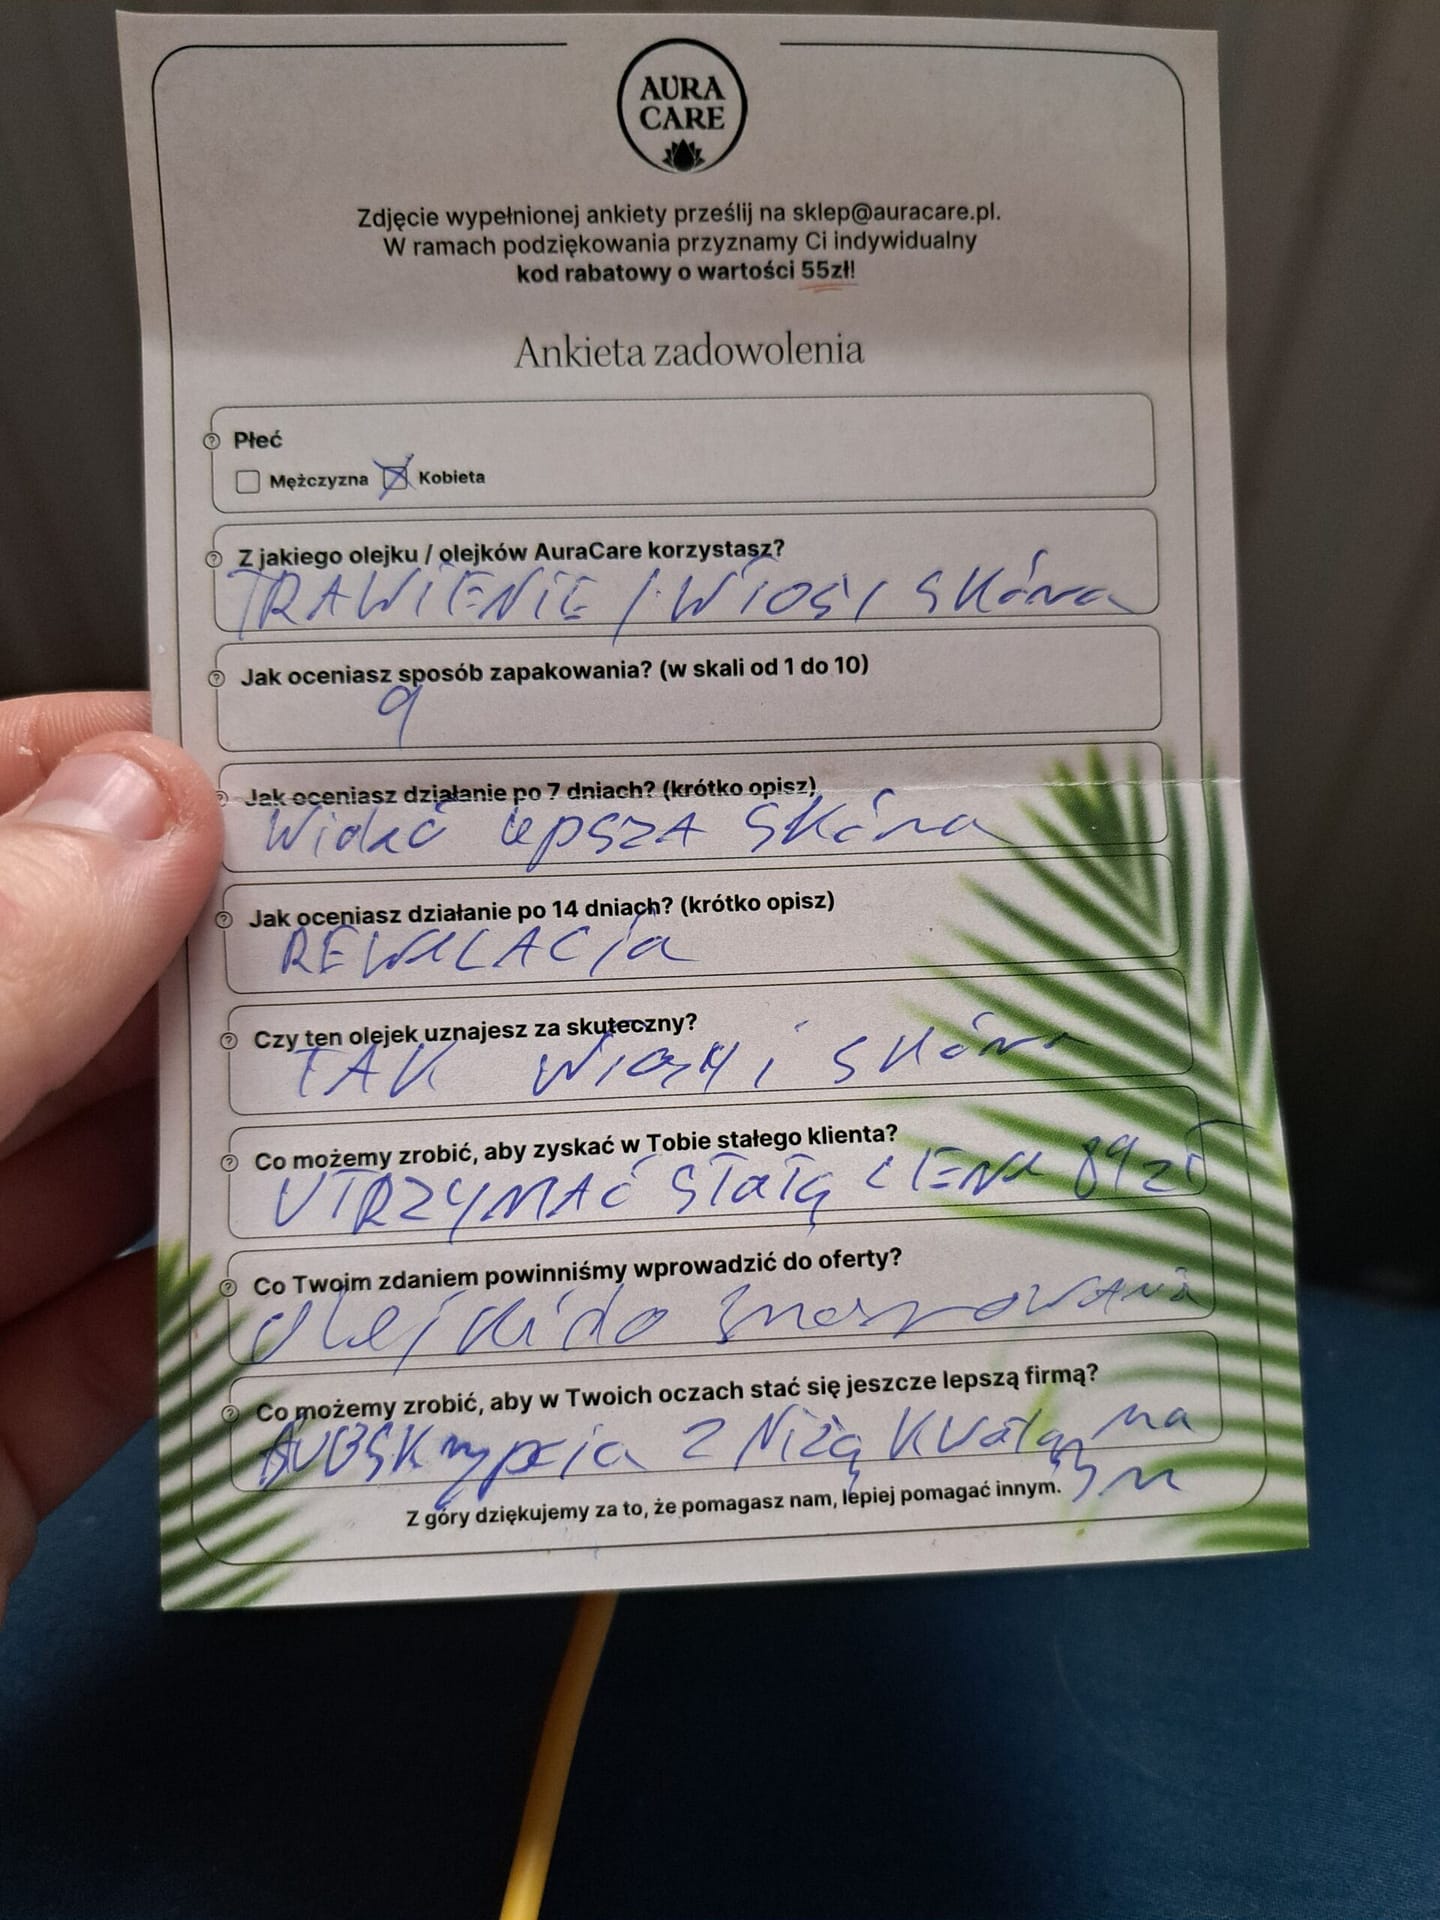 AURA
CARE
Zdjęcie wypełnionej ankiety prześlij na sklep@auracare.pl.
W ramach podziękowania przyznamy Ci indywidualny
kod rabatowy o wartości 55zł!
Ankieta zadowolenia
Płeć
Mężczyzna Kobieta
Z jakiego olejku / olejków AuraCare korzystasz?
TRAWIENIE / WŁOSY SKóra
Jak oceniasz sposób zapakowania? (w skali od 1 do 10)
9
Jak oceniasz działanie po 7 dniach? (krótko opisz)
Widać lepszA SKóra
Jak oceniasz działanie po 14 dniach? (krótko opisz)
REWELACja
Czy ten olejek uznajesz za skuteczny?
TAK Włosy i skóra
Co możemy zrobić, aby zyskać w Tobie stałego klienta?
UTRZYMAĆ STałą CENę 89 zł
Co Twoim zdaniem powinniśmy wprowadzić do oferty?
olejki do smarowania
Co możemy zrobić, aby w Twoich oczach stać się jeszcze lepszą firmą?
SUBSKrypcja z Niżą KWotą na
Z góry dziękujemy za to, że pomagasz nam, lepiej pomagać innym.